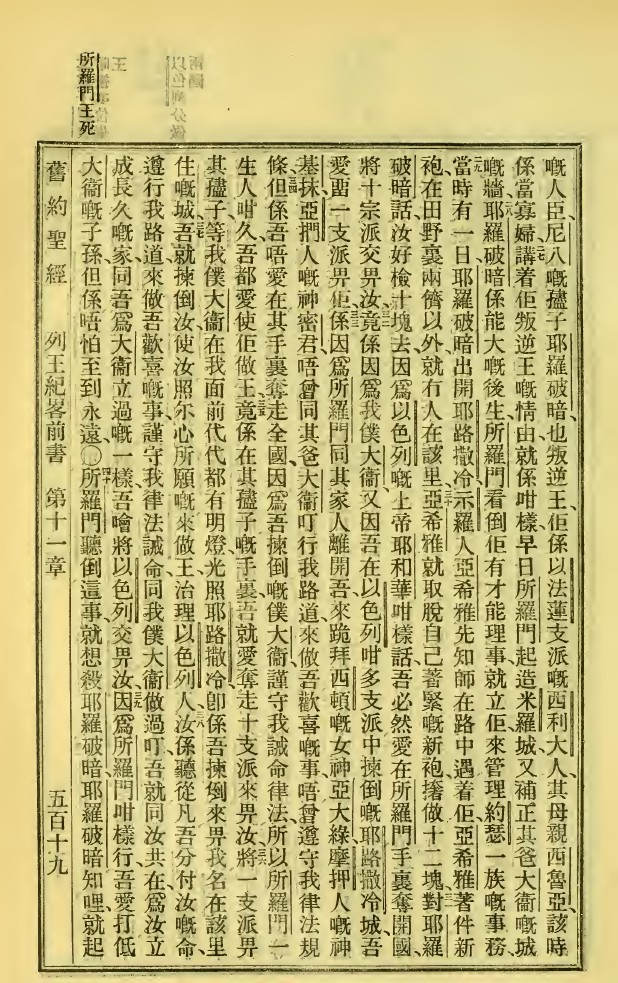 所羅門王死
嘅人臣尼八嘅孻子耶羅破暗也叛逆王佢係以法蓮支派嘅西利大人其母親西魯亞該時
係當寡婦講着佢叛逆王嘅情由就係咁樣早日所羅門起造米羅城又補正其爸大衞嘅城
嘅牆耶羅破暗係能大嘅後生所羅門看倒佢有才能理事就立佢來管理約瑟一族嘅事務
當時有一日耶羅破暗出開耶路撒冷示羅人亞希雅先知師在路中遇着佢亞希雅著件新
袍在田野裏兩儕以外就冇人在該里亞希雅就取脫自己著緊嘅新袍撦做十二塊對耶羅
破暗話汝好檢十塊去因爲以色列嘅上帝耶和華咁樣話吾必然愛在所羅門手裏奪開國
將十宗派交畀汝竟係因爲我僕大衞又因吾在以色列咁多支派中揀倒嘅耶路撒冷城吾
愛畱一支派畀佢係因爲所羅門同其家人離開吾來跪拜西頓嘅女神亞大綠摩押人嘅神
基抹亞捫人嘅神密君唔曾同其爸大衞叮行我路道來做吾歡喜嘅事唔曾遵守我律法規
條但係吾唔愛在其手裏奪走全國因爲吾揀倒嘅僕大衞謹守我誡命律法所以所羅門一
生人咁久吾都愛使佢做王竟係在其孻子嘅手裏吾就愛奪走十支派來畀汝將一支派畀
其孻子等我僕大衞在我面前代代都有明燈光照耶路撒冷卽係吾揀倒來畀我名在該里
住嘅城吾就揀倒汝使汝照尔心所願嘅來做王治理以色列人汝係聽從凡吾分付汝嘅命
遵行我路道來做吾歡喜嘅事謹守我律法誡命同我僕大衞做過叮吾就同汝共在爲汝立
成長久嘅家同吾爲大衞立過嘅一樣吾噲將以色列交畀汝因爲所羅門咁樣行吾愛打低
大衞嘅子孫但係唔怕至到永遠〇所羅門聽倒這事就想殺耶羅破暗耶羅破暗知哩就起
舊約聖經 列王紀畧前書 第十一章 五百十九